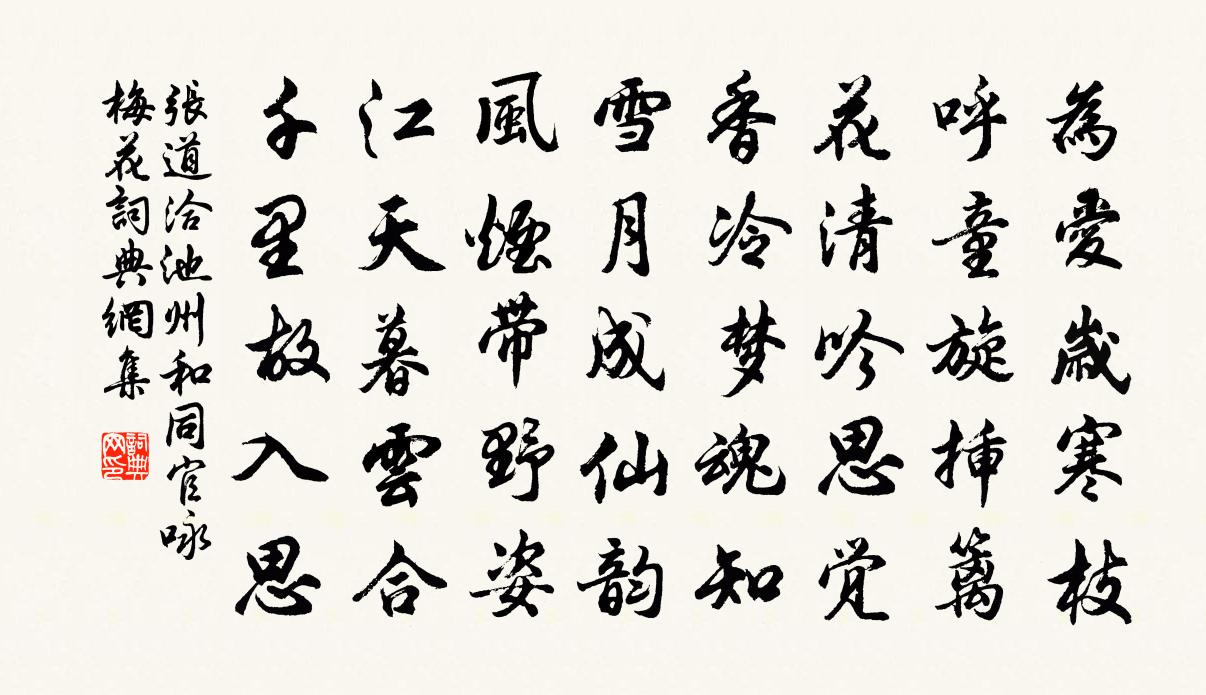 為愛歲寒枝
呼童旋挿籬
花清吟思觉
香冷梦魂知
雪月成仙韵
風煙帯野姿
江天暮雲合
千里故入思
張道洽池州和同官咏
梅花詞典網集
詞典网印